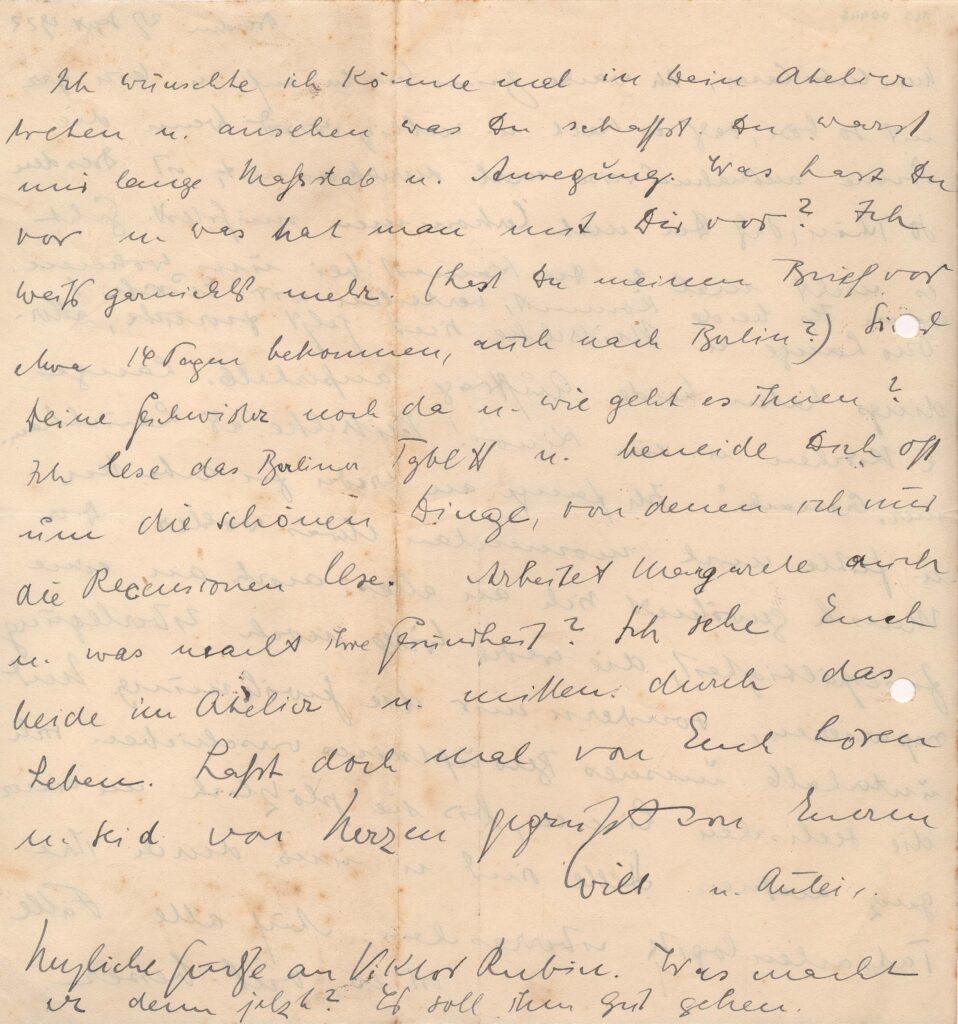 Ich wünschte ich könnte mal in Dein Atelier
treten u. ansehen was Du schaffst. Du warst
mir lange Maßstab u. Anregung. Was hast Du
vor u was hat man mit Dir vor? Ich
weiß garnichts mehr. (Hast Du meinen Brief vor
etwa 14 Tagen bekommen, auch nach Berlin?) Sind
Deine Geschwister noch da u. wie geht es ihnen?
Ich lese das Berliner Tgbltt u. beneide Dich oft
um die schönen Dinge, von denen ich nur
die Recensionen lese. Arbeitet Margarete auch
u. was macht ihre Gesundheit? Ich sehe Euch
beide im Atelier u. mitten durch das
Leben. Laßt doch mal von Euch hören
u. seid von Herzen gegrüßt von Eurem
Will u.
Herzliche Grüße an Viktor Rubin. Was macht
er denn jetzt? Es soll ihm gut gehen.